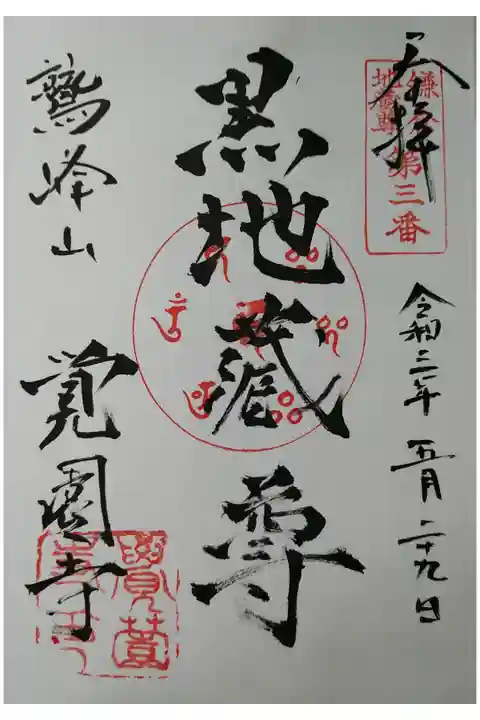 奉拝
鎌倉
地蔵尊
第三番
令和二年 五月 二十九日
黒地蔵尊
鷲峰山
覚園寺